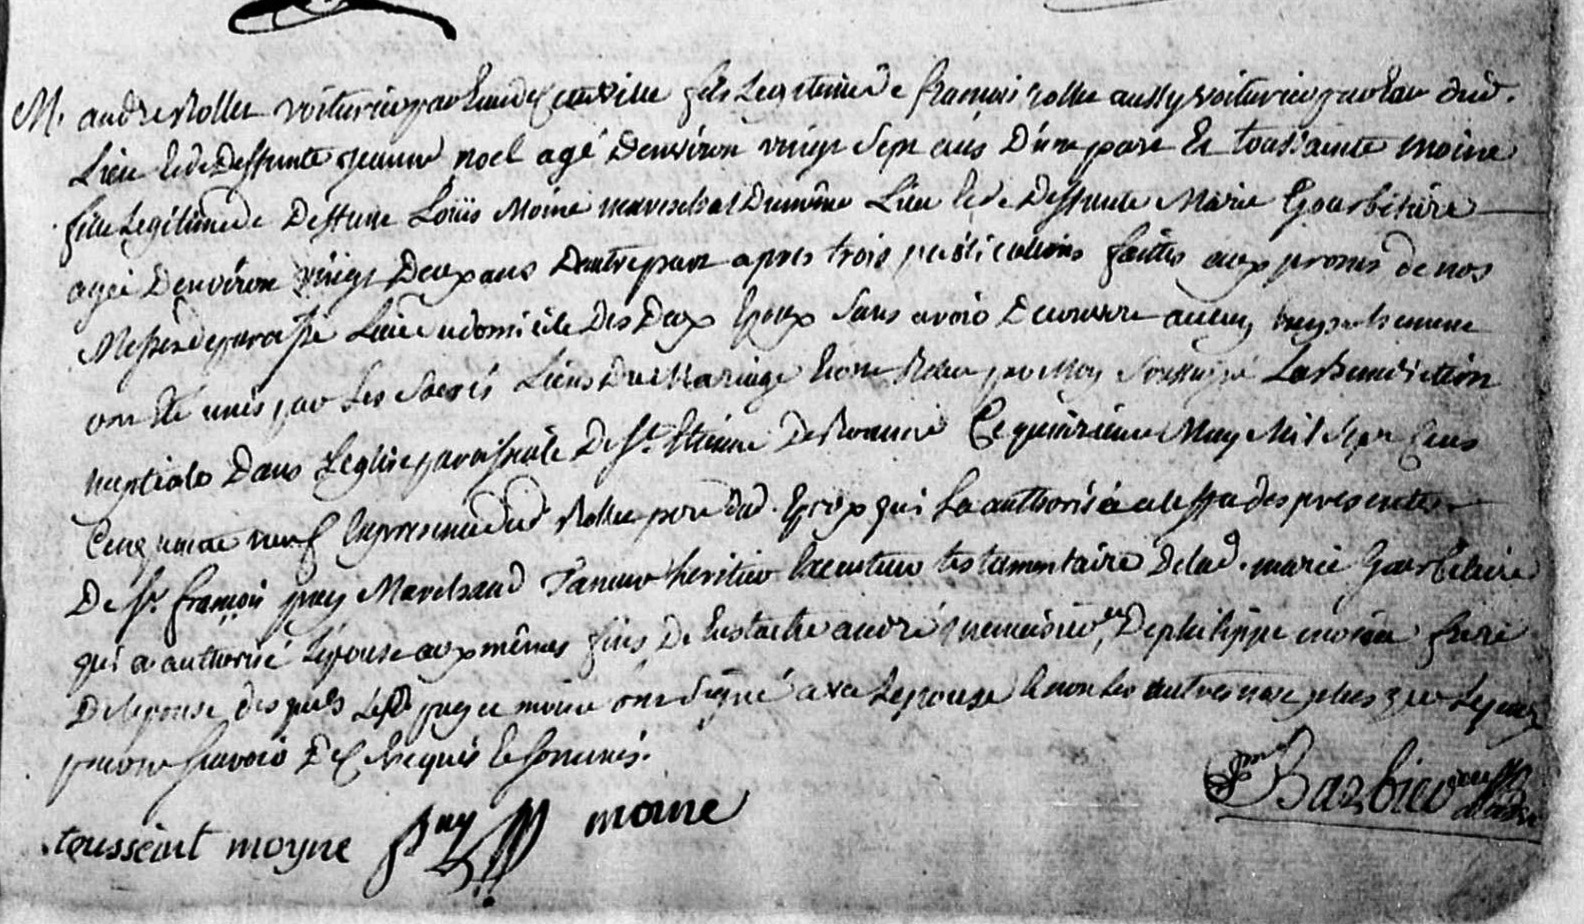 M. andre Rollet voiturier par Eau de cette ville fils Legitime de francois rollet aussy voiturier par Eau dud.
Lieu Et de Deffunte jeanne noel agé Denviron vingt Sept ans D'une part Et toussainte moine
fille Legitime de Deffunt Loüis Moine mareschal Du même Lieu Et de Deffunte Marie Gourbiliere
agée Denviron vingt Deux ans Dautre part apres trois publications faites aux prones de nos
Messes de paroisse Lieu du domicile Des Deux Epoux Sans avoir Decouvert aucun Empechement
ont Eté unis par Les Sacrés Liens Du Mariage Et ont Receu par Moy Soussigné La Benediction
nuptiale Dans L'eglise paroissiale De St. Etienne De Roanne Ce quinzieme May Mil Sept Cens
Cinquante neuf En presence dud Rollet pere dud. Epoux qui La authorisé a leffet des presentes
De Sr. francois puy Marchand Taneur heritier Executeur testamentaire De lad. marie Gourbiliere
qui a authorisé L'epouse aux mêmes fins, De Eustache andré De philippe moine frere
De lepouse desquels Led puy et moine ont Signé avec Lepouse Et non Les autres non plus que Lepoux
pour ne Scavoir De Ce Enquis Et Sommés.
toussaint moyne puy moine
Barbier